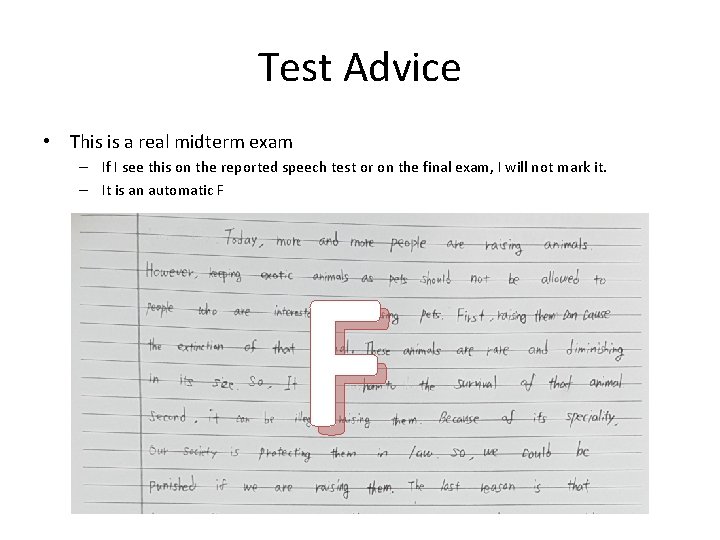 Test Advice
• This is a real midterm exam
– If I see this on the reported speech test or on the final exam, I will not mark it.
– It is an automatic F
Today, more and more people are raising animals.
However, keeping exotic animals as pets should not be allowed to
people who are pets. First, raising them can cause
the extinction of that These animals are rare and diminishing
in its size. So, It to the survival of that animal
Second, it can be raising them. Because of its speciality,
Our society is protecting them in law. so, we could be
punished if we are raising them. The last reason is that
F